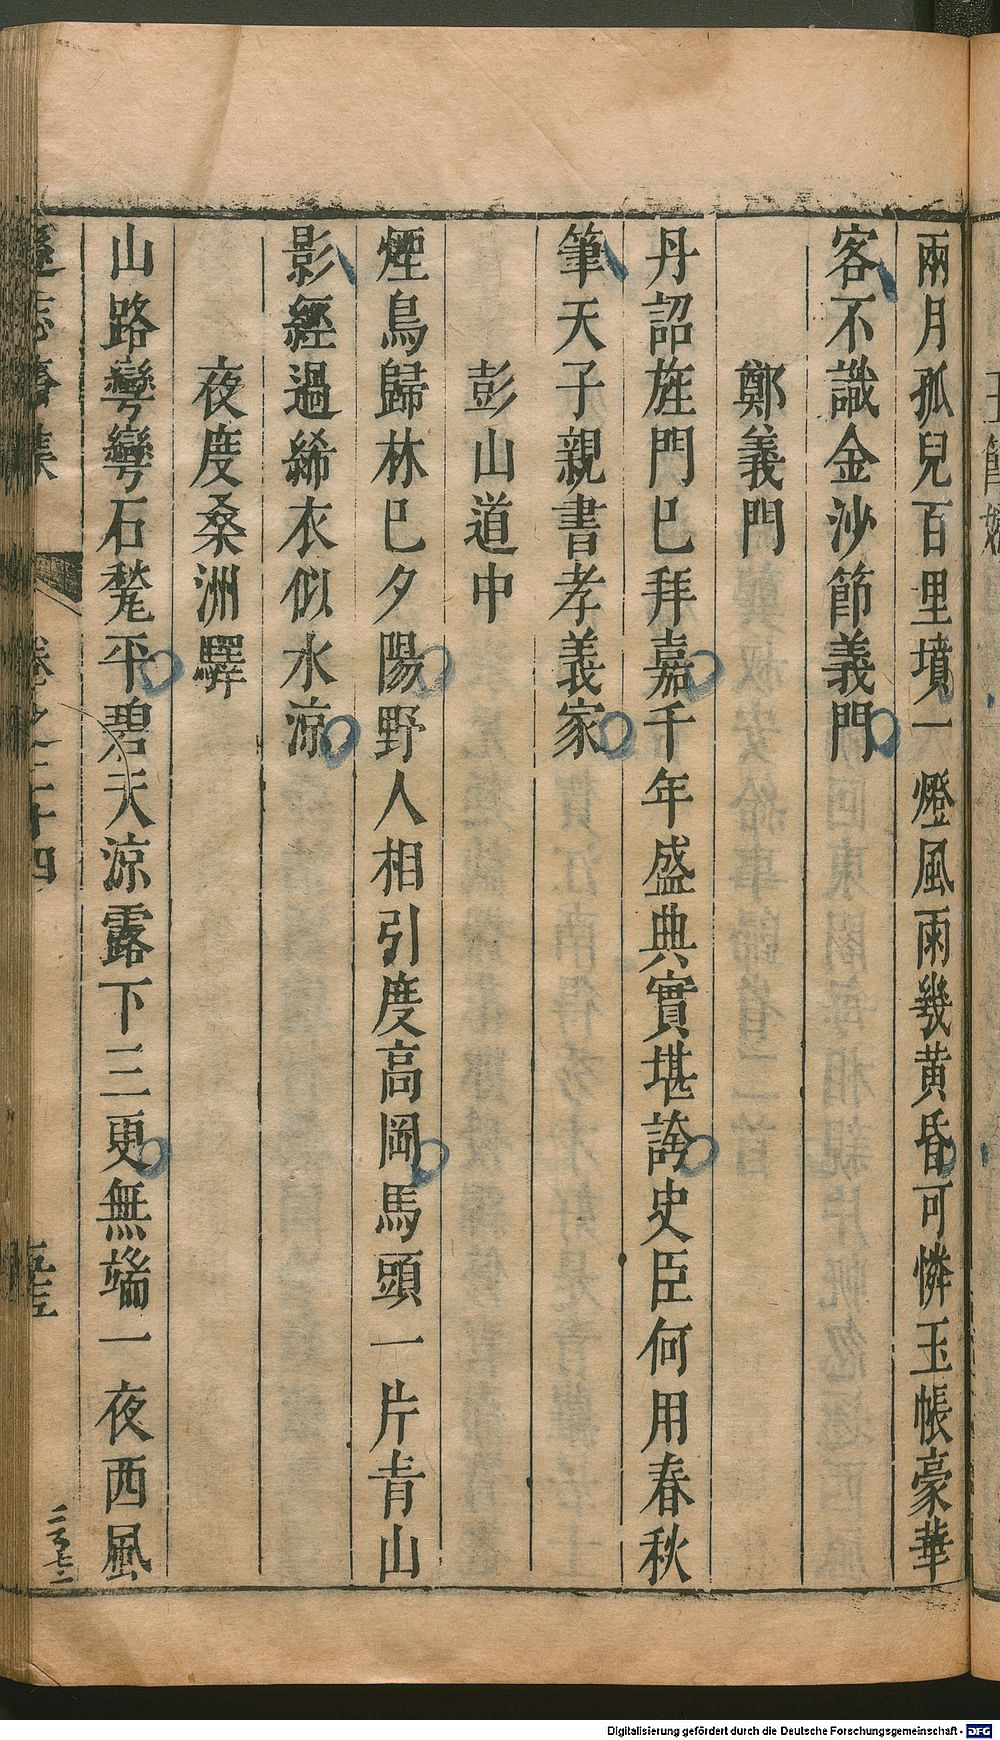 兩月孤兒百里墳一燈風雨幾黃昏可憐玉帳豪華
客不識金沙節義門
鄭義門
丹詔旌門已拜嘉千年盛典實堪誇史臣何用春秋
筆天子親書孝義家
彭山道中
煙鳥歸林已夕陽野人相引度高岡馬頭一片青山
影經過絺衣似水涼
夜度桑洲驛
山路彎彎石甃平碧天涼露下三更無端一夜西風
遜志齋集
卷之二十四
五
二百七二
Digitalisierung gefördert durch die Deutsche Forschungsgemeinschaft - DFG